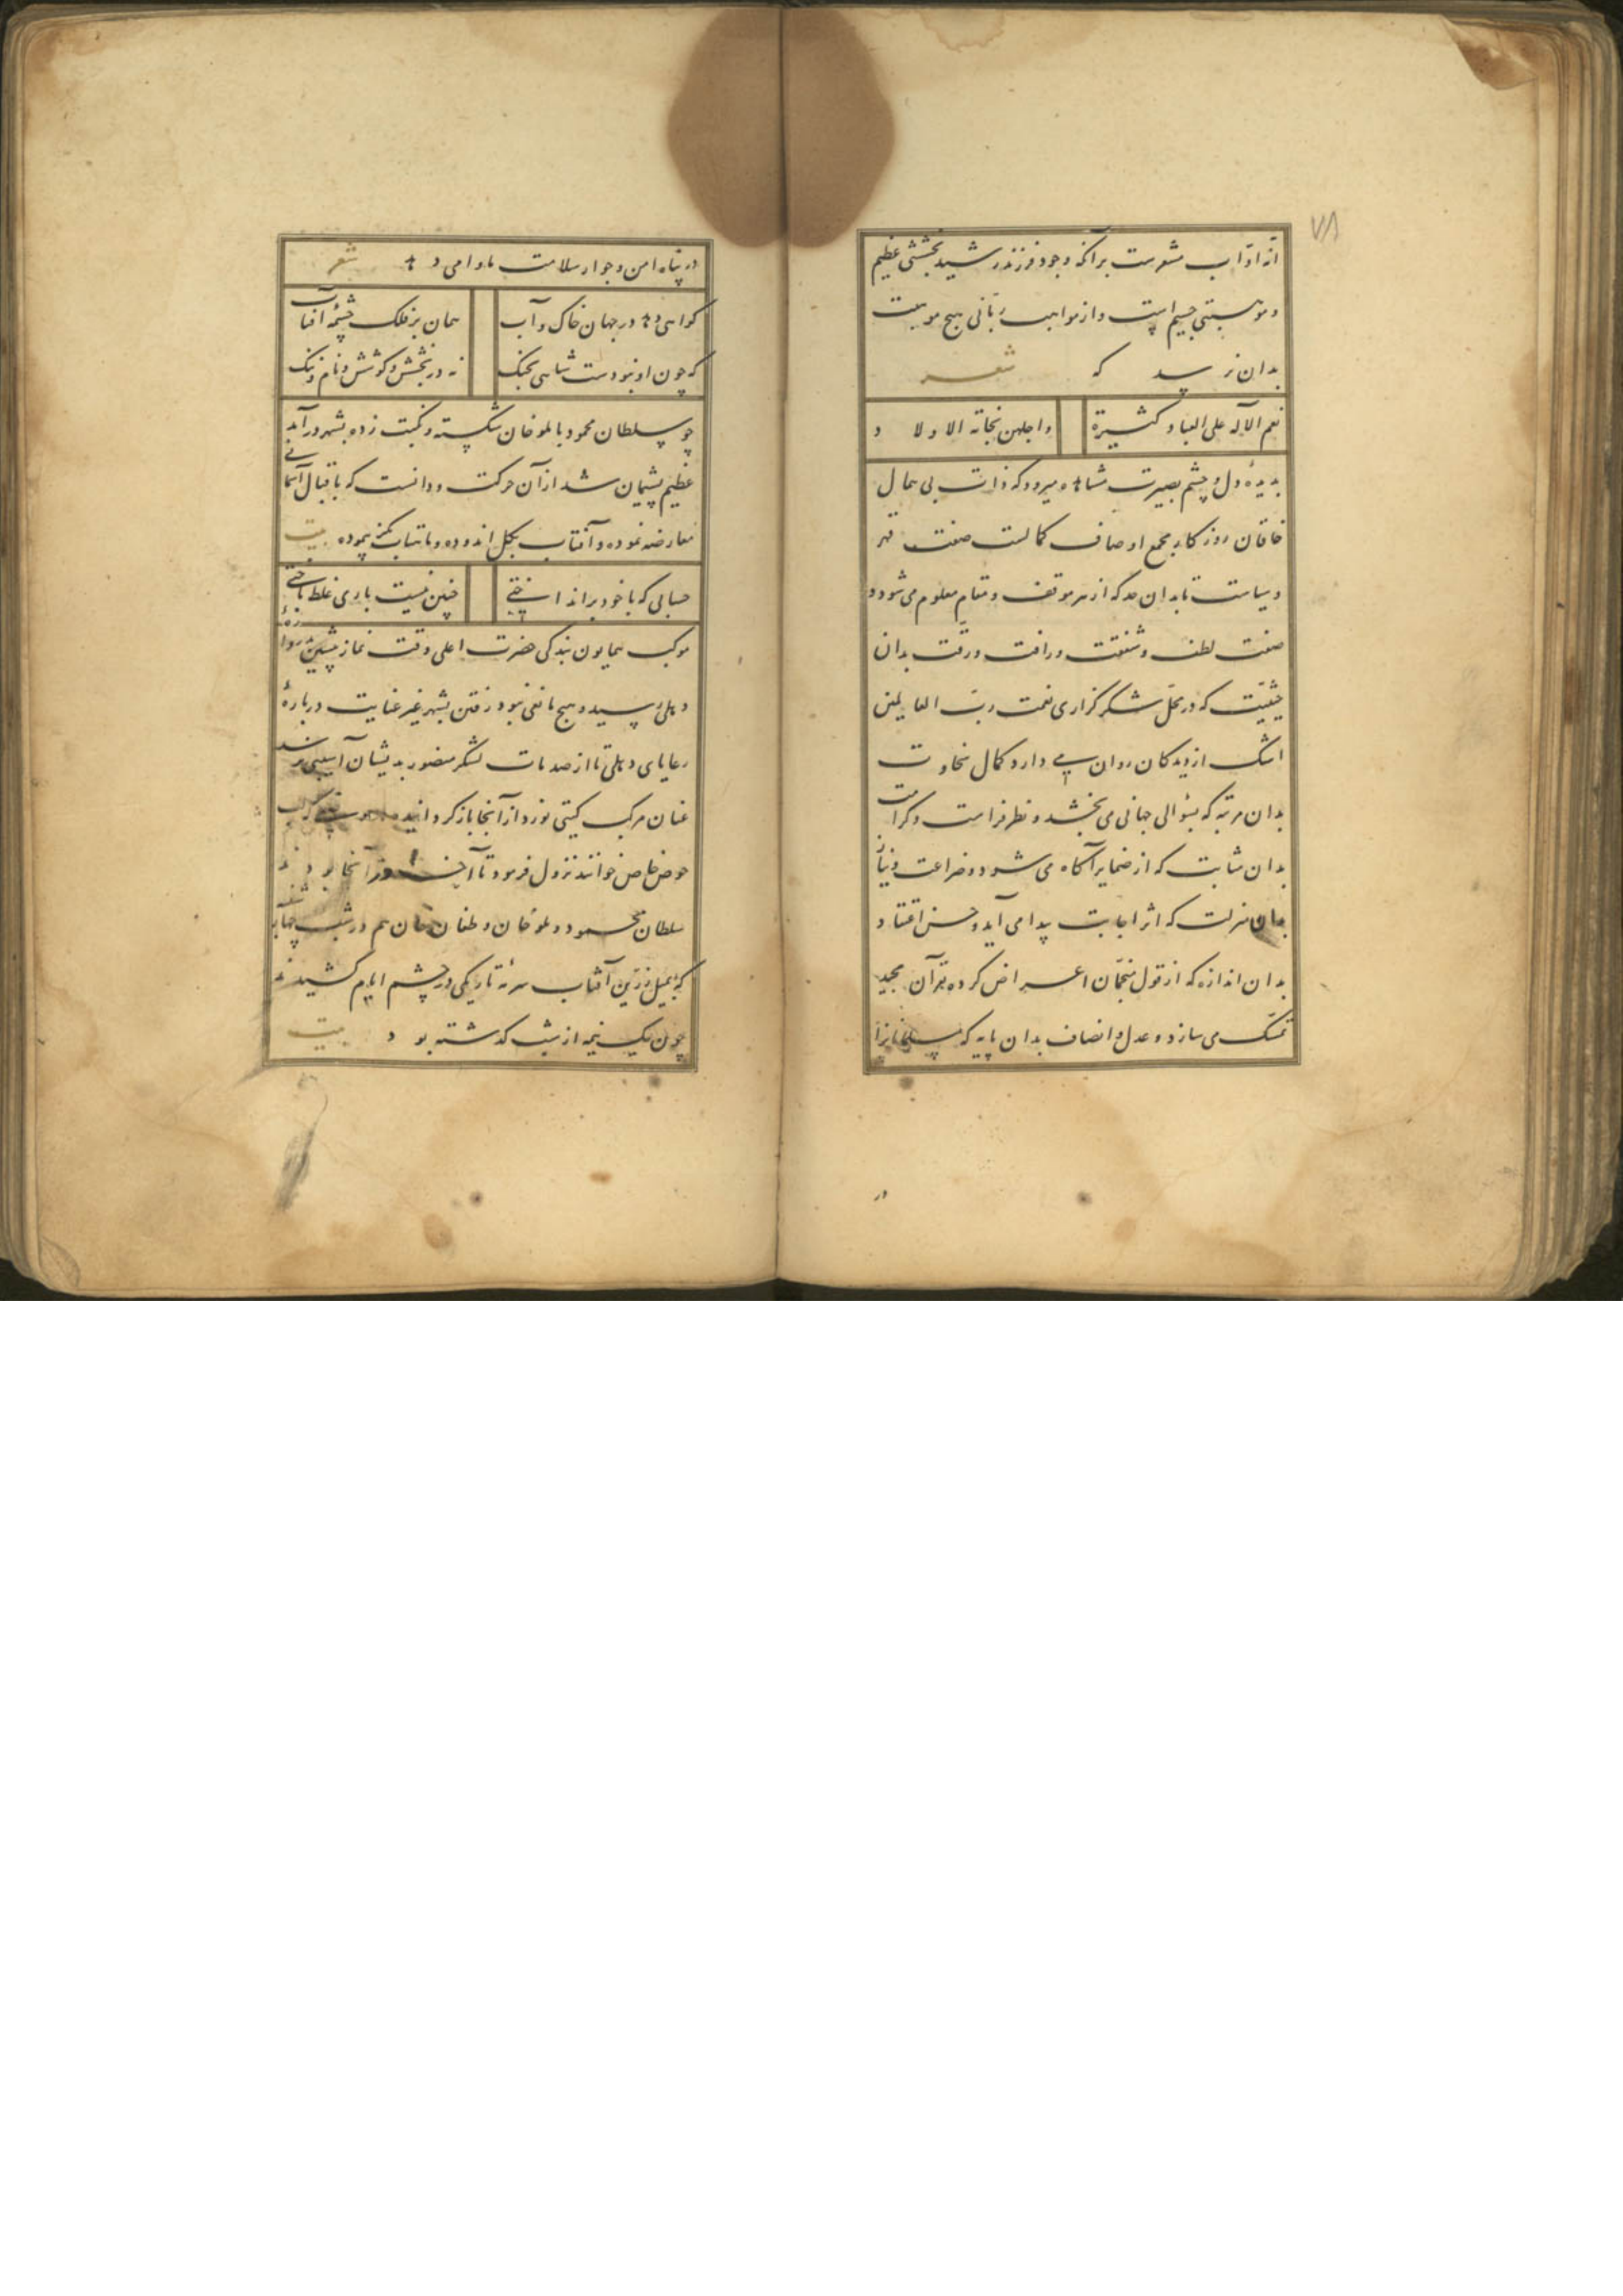 ۷۸
انه اوّاب مشعرست برآنکه وجود فرزند رشید بخششی عظیم
و موهبتی جسیم است و از مواهب ربّانی هیچ موهبت
بدان نرسد که شعر
نعم الاله علی العباد کثیرة واجلهن نجابة الاولاد
بدیدهٔ دل و چشم بصیرت مشاهده میرود که ذات بی همال
خاقان روزکار مجمع اوصاف کمالست صفت قهر
و سیاست تا بدان حد که از هر موقف و مقام معلوم می شود و
صفت لطف و شفقت و رافت و رقت بدان
حیثیّت که در محل شکر گزاری نعمت ربّ العالمین
اشک از دیدکان روان می دارد و کمال سخاوت
بدان مرتبه که بسؤالی جهانی می بخشد و نظر فراست و کرامت
بدان مثابت که از ضمایر آکاه می شود و ضراعت و نیاز
بدان منزلت که اثر اجابت پیدا می آید و حسن اعتقاد
بدان اندازه که از قول منجّمان اعراض کرده بقرآن مجید
تمسّک می سازد و عدل و انصاف بدان پایه که
در
در پناه امن و جوار سلامت ماوا می دهد شعر
کواهی دهد در جهان خاک و آب همان بر فلک چشمهٔ آفتاب
که چون او نبودست شاهی بجنک نه در بخشش و کوشش و نام و ننک
چو سلطان محمود با ملوخان شکسته و نکبت زده بشهر درآمد
عظیم پشیمان شد از آن حرکت و دانست که با قبال آسمانی
معارضه نموده و آفتاب بکل اندوده و ماهتاب بکز پیموده بیت
حسابی که با خود برانداختی چنین نیست بازی غلط باختی
موکب همایون بندکی حضرت اعلی وقت نماز پیشین بدروازهٔ
دهلی رسید و هیچ مانعی نبود ز رفتن بشهر غیر عنایت دربارهٔ
رعایای دهلی تا از صدمات لشکر منصور بدیشان آسیبی نرسد
عنان مرکب کیتی نورد از آنجا باز کردانید
حوض خاص خوانند نزول فرمود تا آخر روز آنجا بود
سلطان محمود و ملوخان و طغان خان هم در شب
که بمیل زرّین آفتاب سرمهٔ تاریکی در چشم ایام کشیدند
چون یک نیمه از شب کذشته بود بیت